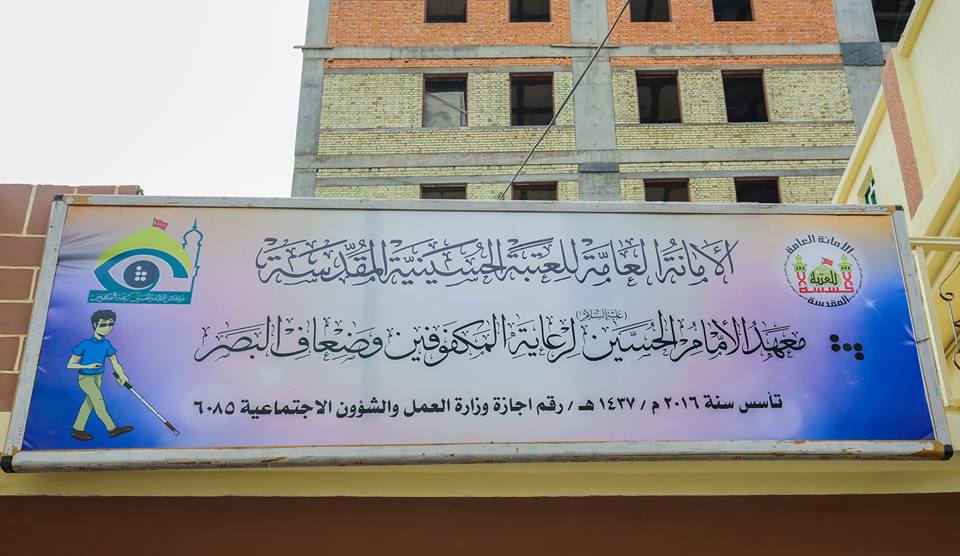 الأمانة العامة للعتبة الحسينية المقدسة
معهد الأمام الحسين (عليه السلام) لرعاية المكفوفين وضعاف البصر
تأسس سنة ٢٠١٦ م / ١٤٣٧ هـ / رقم اجازة وزارة العمل والشؤون الاجتماعية ٦٠٨٥
الامانة العامة
للعتبة
الحسينية
المقدسة